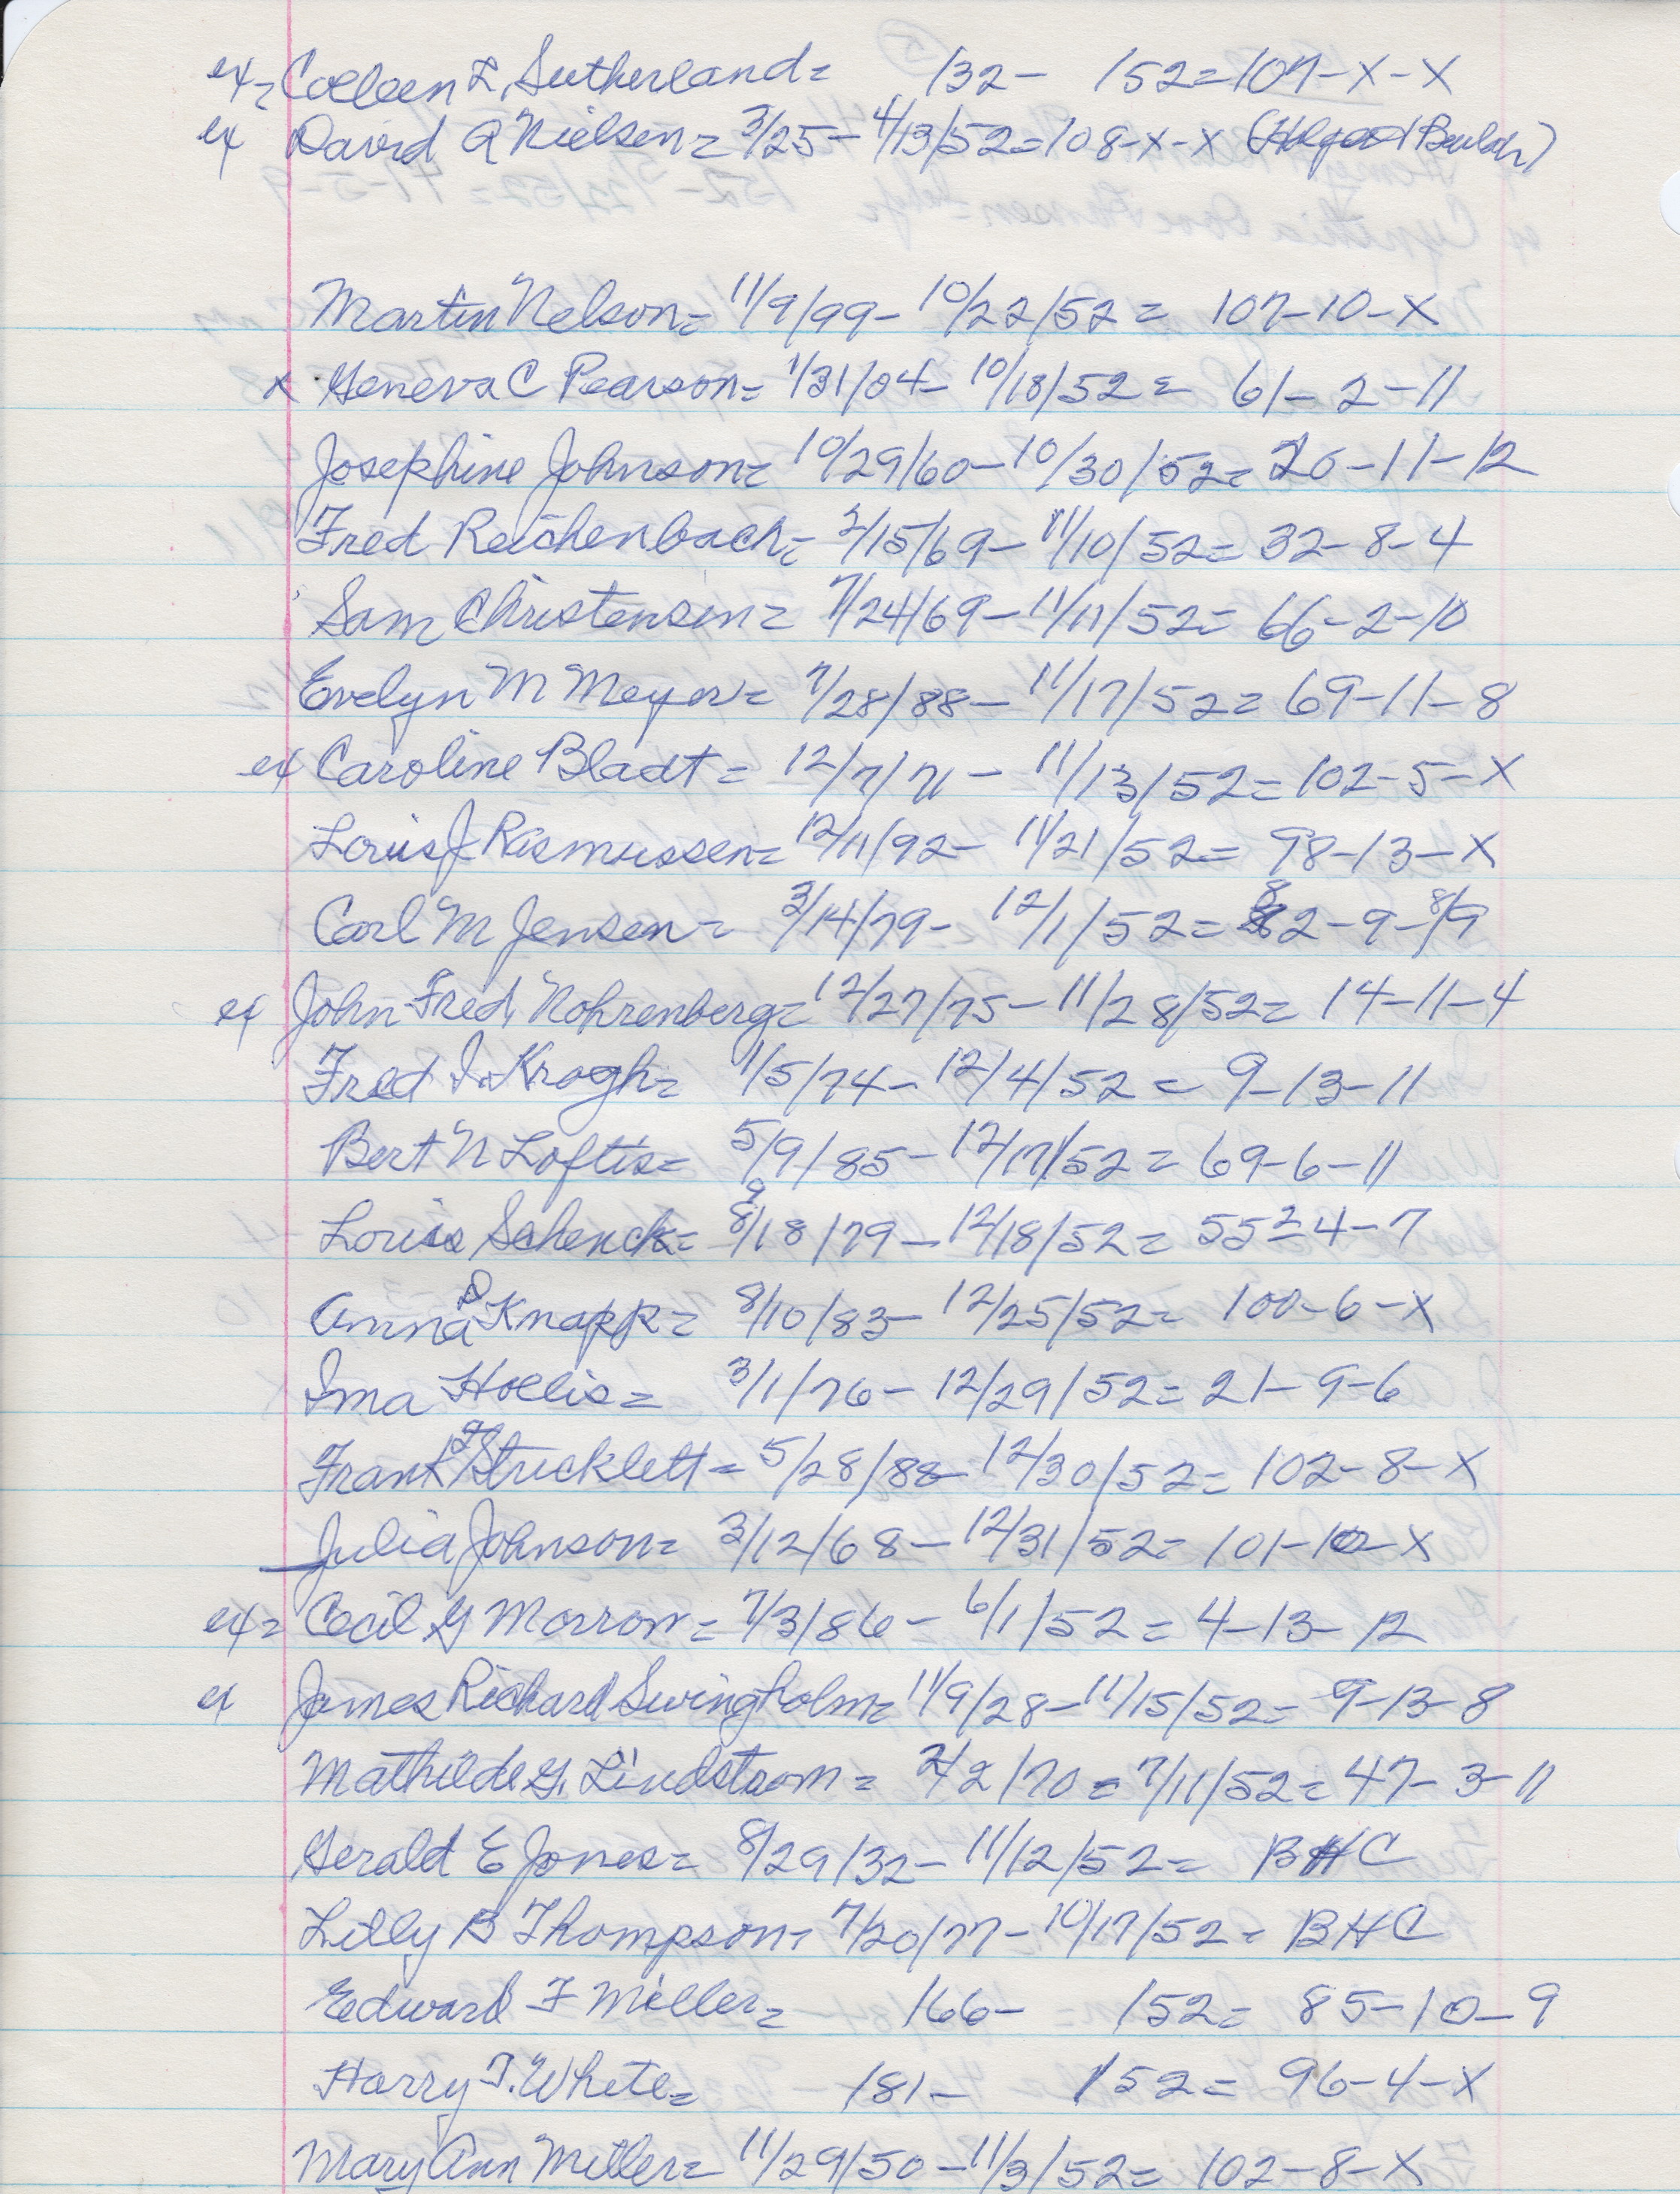 ex= Colleen L, Sutherland= /32- /52=107-X-X
ex David A Nielsen= 3/25-4/13/52=108-X-X ( Beulah)
Martin Nelson= 11/9/99- 10/22/52= 107-10-X
x Geneva C Pearson= 1/31/04- 10/18/52= 61-2-11
Josephine Johnson= 10/29/60-10/30/52= 20-11-12
Fred Reichenbach= 2/15/69-11/10/52= 32-8-4
Sam Christensen= 7/24/69-11/11/52= 66-2-10
Evelyn M Meyer= 7/28/88- 11/17/52= 69-11-8
ex Caroline Bladt= 12/7/71- 11/13/52= 102-5-X
Louis J Rasmussen= 12/11/92- 11/21/52= 98-13-X
Carl M Jensen= 3/14/79- 12/1/52= 82-9-8/9
ex John Fred, Nohrenberg= 12/27/75-11/28/52= 14-11-4
Fred I. Krogh= 1/5/74- 12/4/52= 9-13-11
Bert N Loftis= 5/9/85- 12/17/52= 69-6-11
Louis Schenck= 8/9/18/79- 12/18/52= 552-4-7
Anna D Knapp= 8/10/83- 12/25/52= 100-6-X
Ima Hollis= 3/1/76- 12/29/52= 21-9-6
Frank Stricklett= 5/28/88- 12/30/52= 102-8-X
Julia Johnson= 3/12/68- 12/31/52= 101-10-X
ex= Cecil G Morrow= 7/3/86- 6/1/52= 4-13-12
ex James Richard Swingholm= 11/9/28-11/15/52= 9-13-8
Mathilde G. Lindstrom= 2/2/70= 7/11/52= 47-3-11
Gerald E Jones= 8/29/32- 11/12/52= BHC
Lilly B Thompson= 7/20/77- 10/17/52= BHC
Edward F Miller= /66- /52= 85-10-9
Harry T. White= /81- /52= 96-4-X
Mary Ann Miller= 11/29/50-11/3/52= 102-8-X